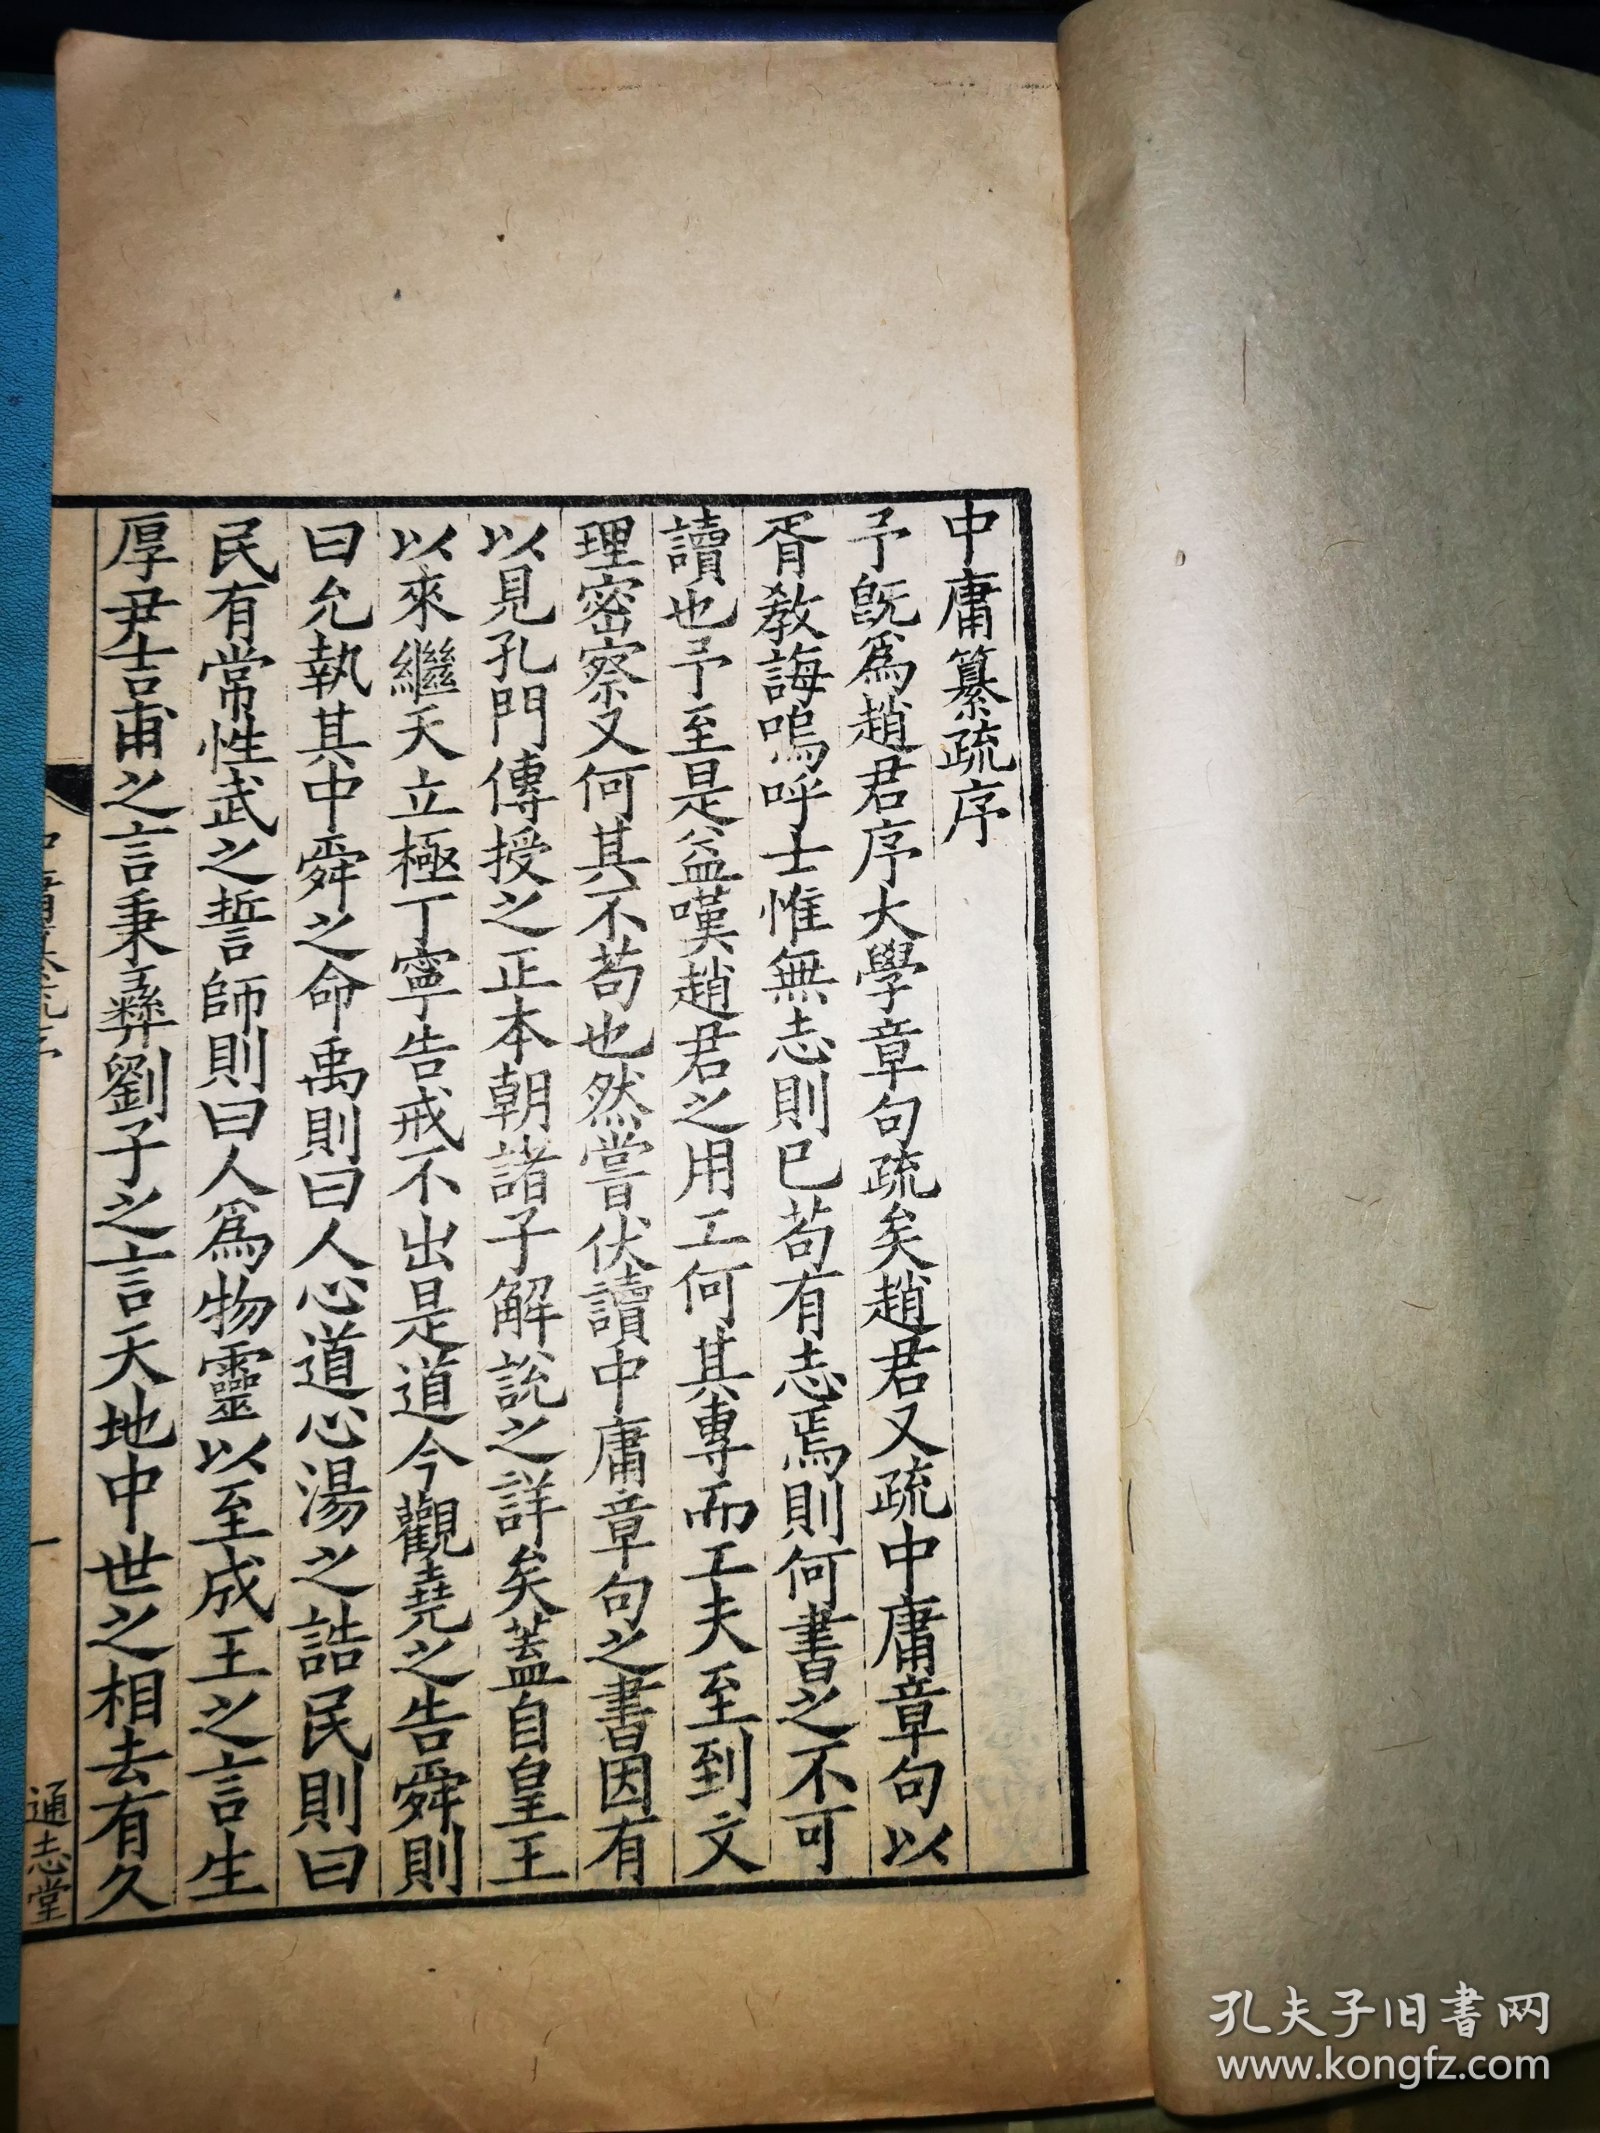 中庸纂疏序
予旣爲趙君序大學章句疏矣趙君又疏中庸章句以
胥敎誨嗚呼士惟無志則已苟有志焉則何書之不可
讀也予至是益嘆趙君之用工何其專而工夫至到文
理密察又何其不苟也然嘗伏讀中庸章句之書因有
以見孔門傳授之正本朝諸子解說之詳矣蓋自皇王
以來繼天立極丁寧告戒不出是道今觀堯之告舜則
曰允執其中舜之命禹則曰人心道心湯之誥民則曰
民有常性武之誓師則曰人爲物靈以至成王之言生
厚尹吉甫之言秉彞劉子之言天地中世之相去有久
一
通志堂
孔夫子旧书网
www.kongfz.com